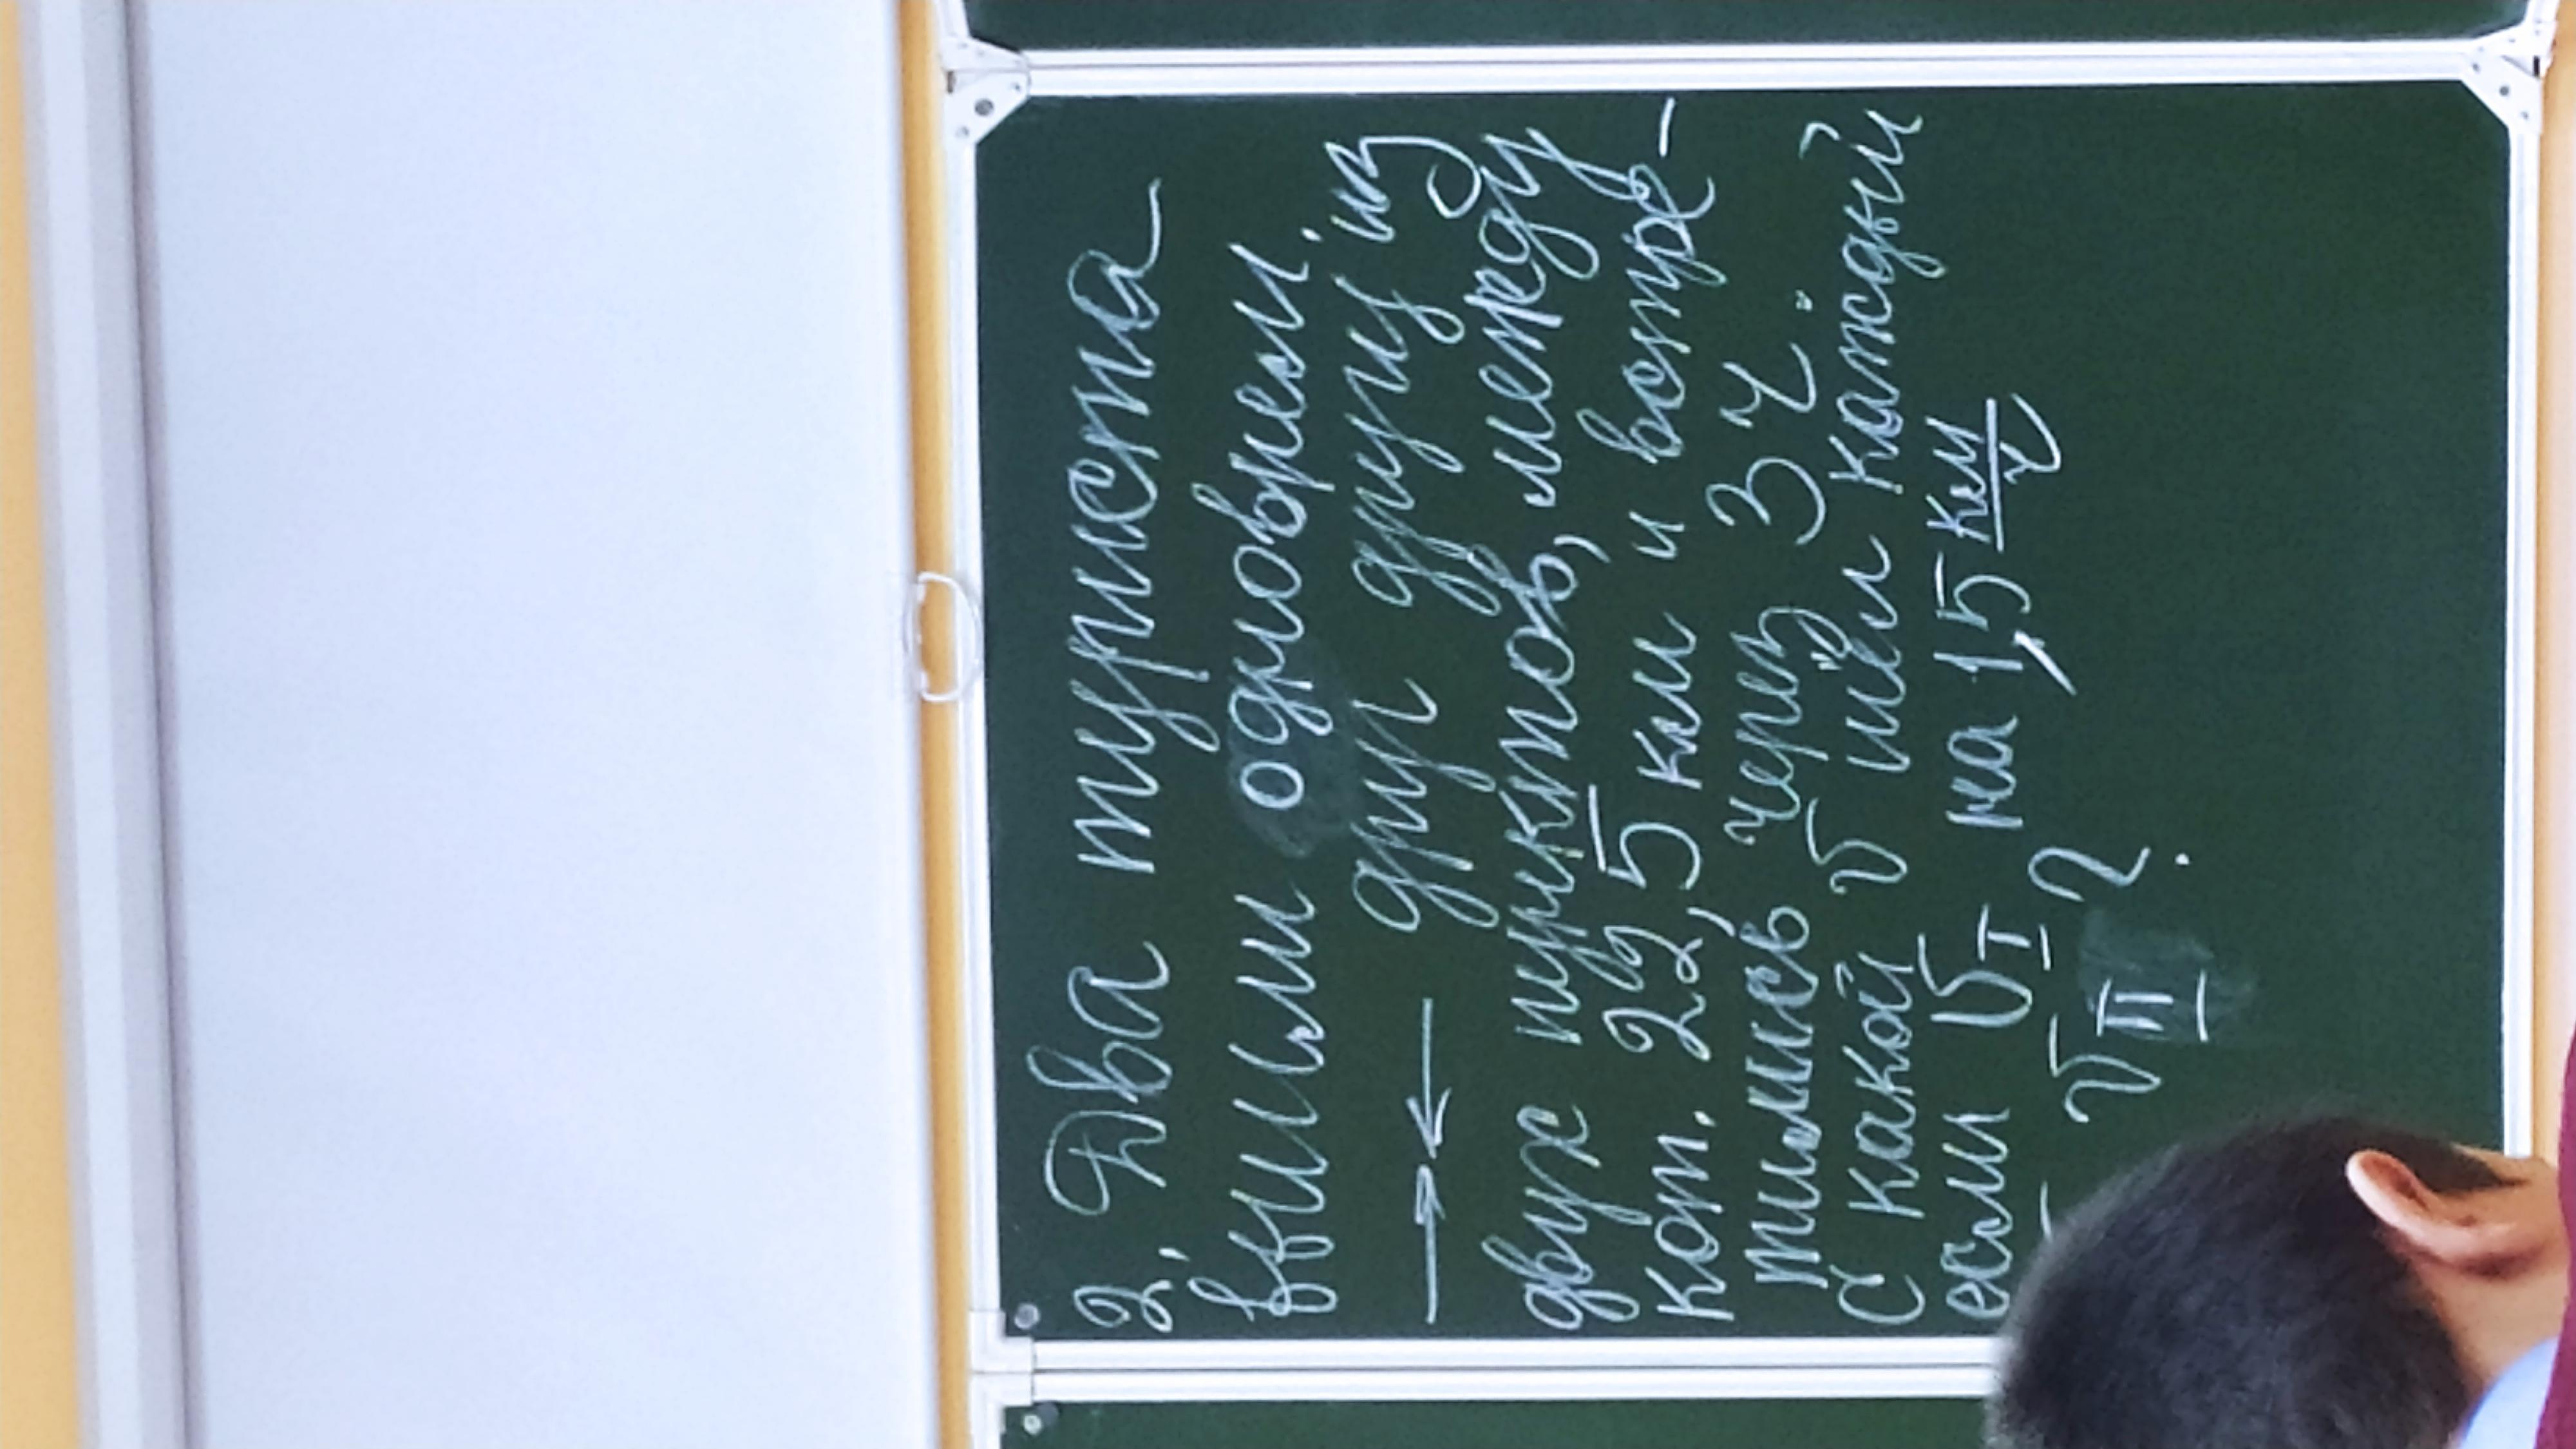 2. Два туриста
вышли одноврем. из
→ ← друг другу из
двух пунктов, между
кот. 22,5 км и встре-
тились через 3 ч.
С какой v шёл каждый
если v I на 1,5 км/ч
v II ?